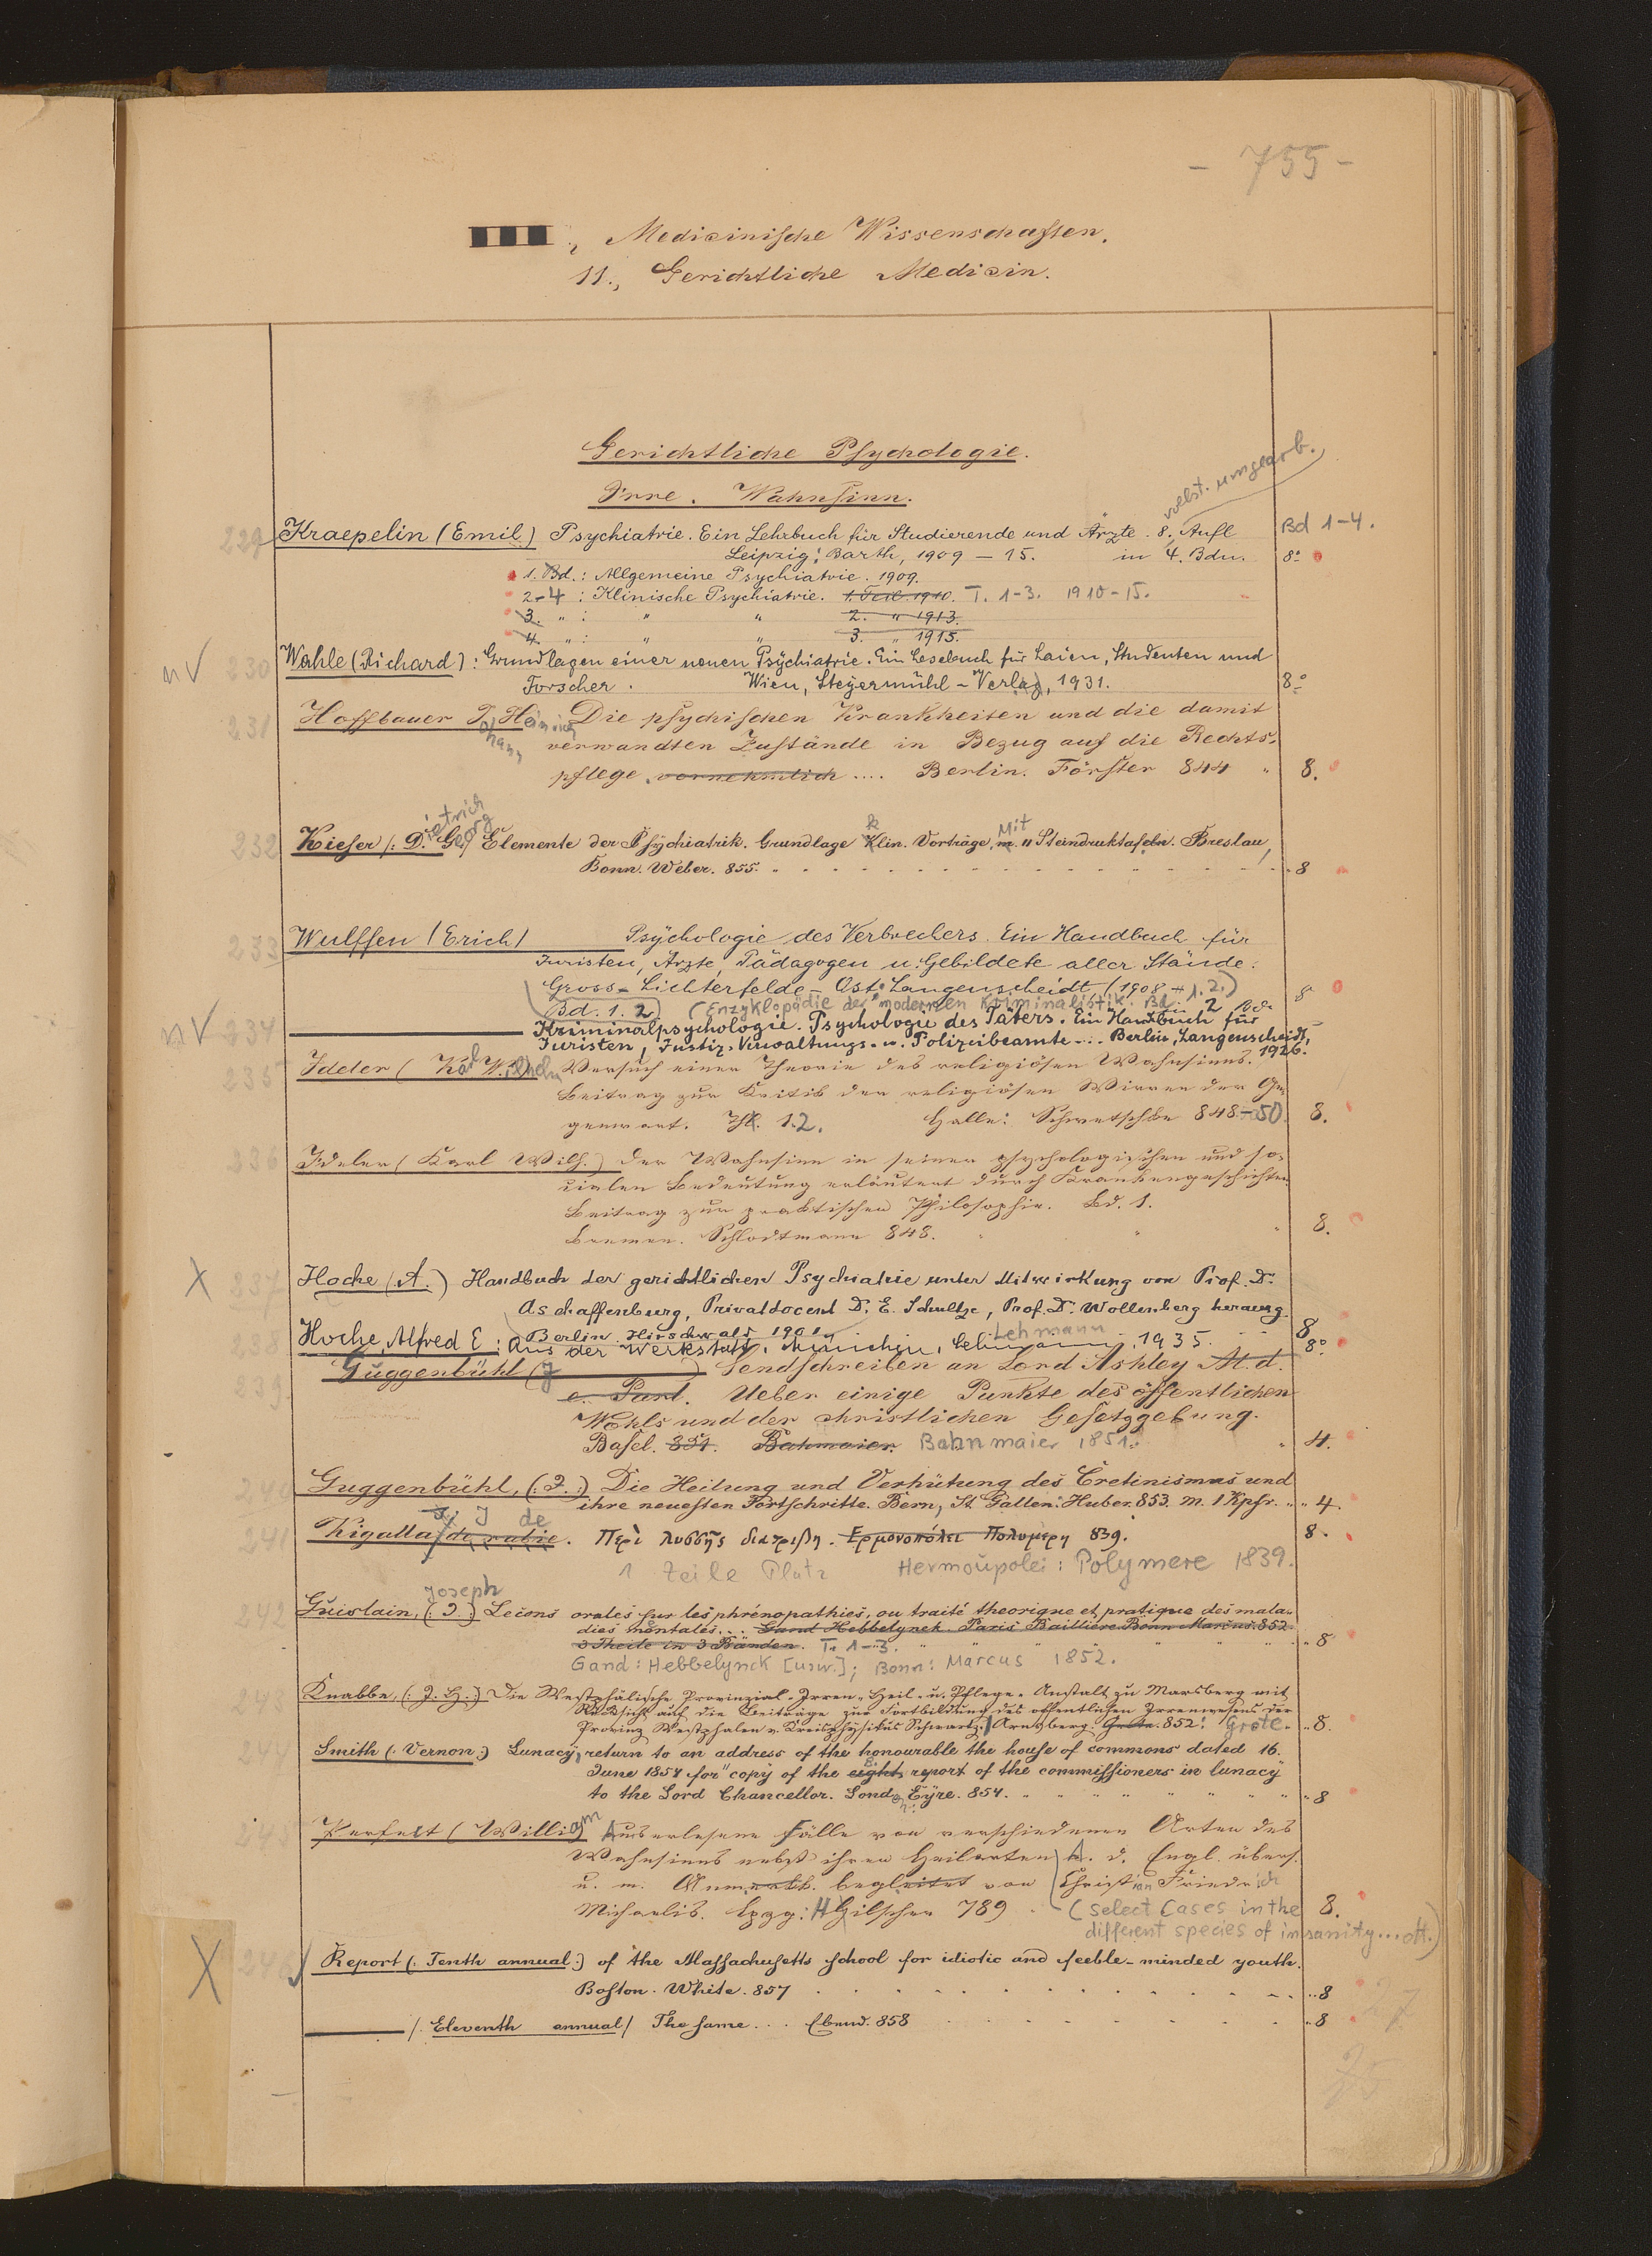 - 755 -
Medicinische Wissenschaften.
11., Gerichtliche Medicin.
Gerichtliche Psychologie.
Irre. Wahnsinn.
vollst. umgearb.
229 Kraepelin (Emil) Psychiatrie. Ein Lehrbuch für Studierende und Ärzte. 8. Aufl Bd 1-4.
Leipzig: Barth, 1909 - 15. in 4. Bdn. 8°
1. Bd.: Allgemeine Psychiatrie. 1909.
2-4 : Klinische Psychiatrie. 1. Teil 1910. T. 1-3. 1910-15.
3. " : " " 2. " 1913.
4. " : " " 3 " 1915.
nV 230 Wahle (Richard): Grundlagen einer neuen Psychiatrie. Ein Lesebuch für Laien, Studenten und
Forscher. Wien, Steyermühl-Verlag, 1931. 8°
231 Hoffbauer Johann Heinrich Die psychischen Krankheiten und die damit
verwandten Zustände in Bezug auf die Rechts-
pflege vornehmlich .... Berlin. Förster 844 " 8.
232 Kieser (: Dietrich Georg) Elemente der Psychiatrik. Grundlage klin. Vorträge, Mit 11 Steindrucktafeln. Breslau,
Bonn. Weber. 855. 8
233 Wulffen (Erich) Psychologie des Verbrechers. Ein Handbuch für
Juristen, Ärzte, Pädagogen u. Gebildete aller Stände.
Gross-Lichterfelde-Ost: Langenscheidt, (1908 + 1. 2.) 8°
Bd. 1. 2) (Enzyklopädie der modernen Kriminalistik. Bd. 2 Bde
nV 234 Kriminalpsychologie. Psychologie des Täters. Ein Handbuch für
Juristen, Justiz-Verwaltungs- u. Polizeibeamte... Berlin, Langenscheidt,
1926.
235 Ideler (Karl Wilhelm Versuch einer Theorie des religiösen Wahnsinns.
Beitrag zur Kritik der religiösen Wirren der Ge-
genwart. Th. 1.2. Halle: Schwetschke 848-50 8.
236 Ideler (Karl Wilh.) Der Wahnsinn in seiner psychologischen und so-
cialen Bedeutung erläutert durch Krankengeschichten
Beitrag zur praktischen Philosophie. Bd. 1.
Bremen. Schlodtmann 848. 8.
X 237 Hoche (A.) Handbuch der gerichtlichen Psychiatrie unter Mitwirkung von Prof. Dr.
Aschaffenburg, Privatdocent Dr. E. Schultze, Prof. Dr. Wollenberg herausg.
Berlin. Hirschwald 1901. 8
238 Hoche, Alfred E: Aus der Werkstatt. München, Lehmann 1935. 8°
239 Guggenbühl (J ) Sendschreiben an Lord Ashley M. d.
e. Parl. Ueber einige Punkte des öffentlichen
Wohls und der christlichen Gesetzgebung.
Basel. 851. Bahmaier. Bahnmaier 1851. 4.
240 Guggenbühl, (: J. :) Die Heilung und Verhütung des Cretinismus und
ihre neuesten Fortschritte. Bern, St. Gallen: Huber. 853. M. 1 Kpfr. 4.
241 Kigalla, J de rabie. Περὶ λυσσῆς διατριβη. Ερμουπόλει Πολυμερη 839. 8.
1 Zeile Platz Hermoupolei: Polymere 1839.
242 Guislain, (: Joseph) Lecons orales sur les phrénopathies, ou traité theorique et pratique des mala-
dies mentales... Gand Hebbelynck. Paris Bailliere. Bonn Marcus. 852.
3 Theile in 3 Bänden. T. 1-3. 8
Gand: Hebbelynck [usw.]; Bonn: Marcus 1852.
243 Knabbe, (: J. H. :) Die Westphälische Provinzial-Irren-Heil- u. Pflege-Anstalt zu Marsberg mit
Rücksicht auf die Beiträge zur Fortbildung des öffentlichen Irrenwesens der
Provinz Westphalen v. Kreisphysikus Schwartz. Arnsberg. Grote. 852. Grote. 8.
244 Smith (: Vernon:) Lunacy, return to an address of the honourable the house of commons dated 16.
June 1854 for "copy of the eight 8. report of the commissioners in lunacy
to the Lord Chancellor. London Eyre. 854. 8
245 Perfect (William Auserlesene Fälle von verschiedenen Arten des
Wahnsinns nebst ihren Heilarten A. d. Engl. übers.
u. m. Anmerkk. begleitet von Christian Friedrich
Michaelis. Lpzg: Hilscher 789. (Select Cases in the 8.
different species of insanity... dt.)
X 246 Report (: Tenth annual:) of the Massachusetts school for idiotic and feeble-minded youth.
Boston. White. 857 8
(: Eleventh annual) The same... Ebend. 858 8
27
25